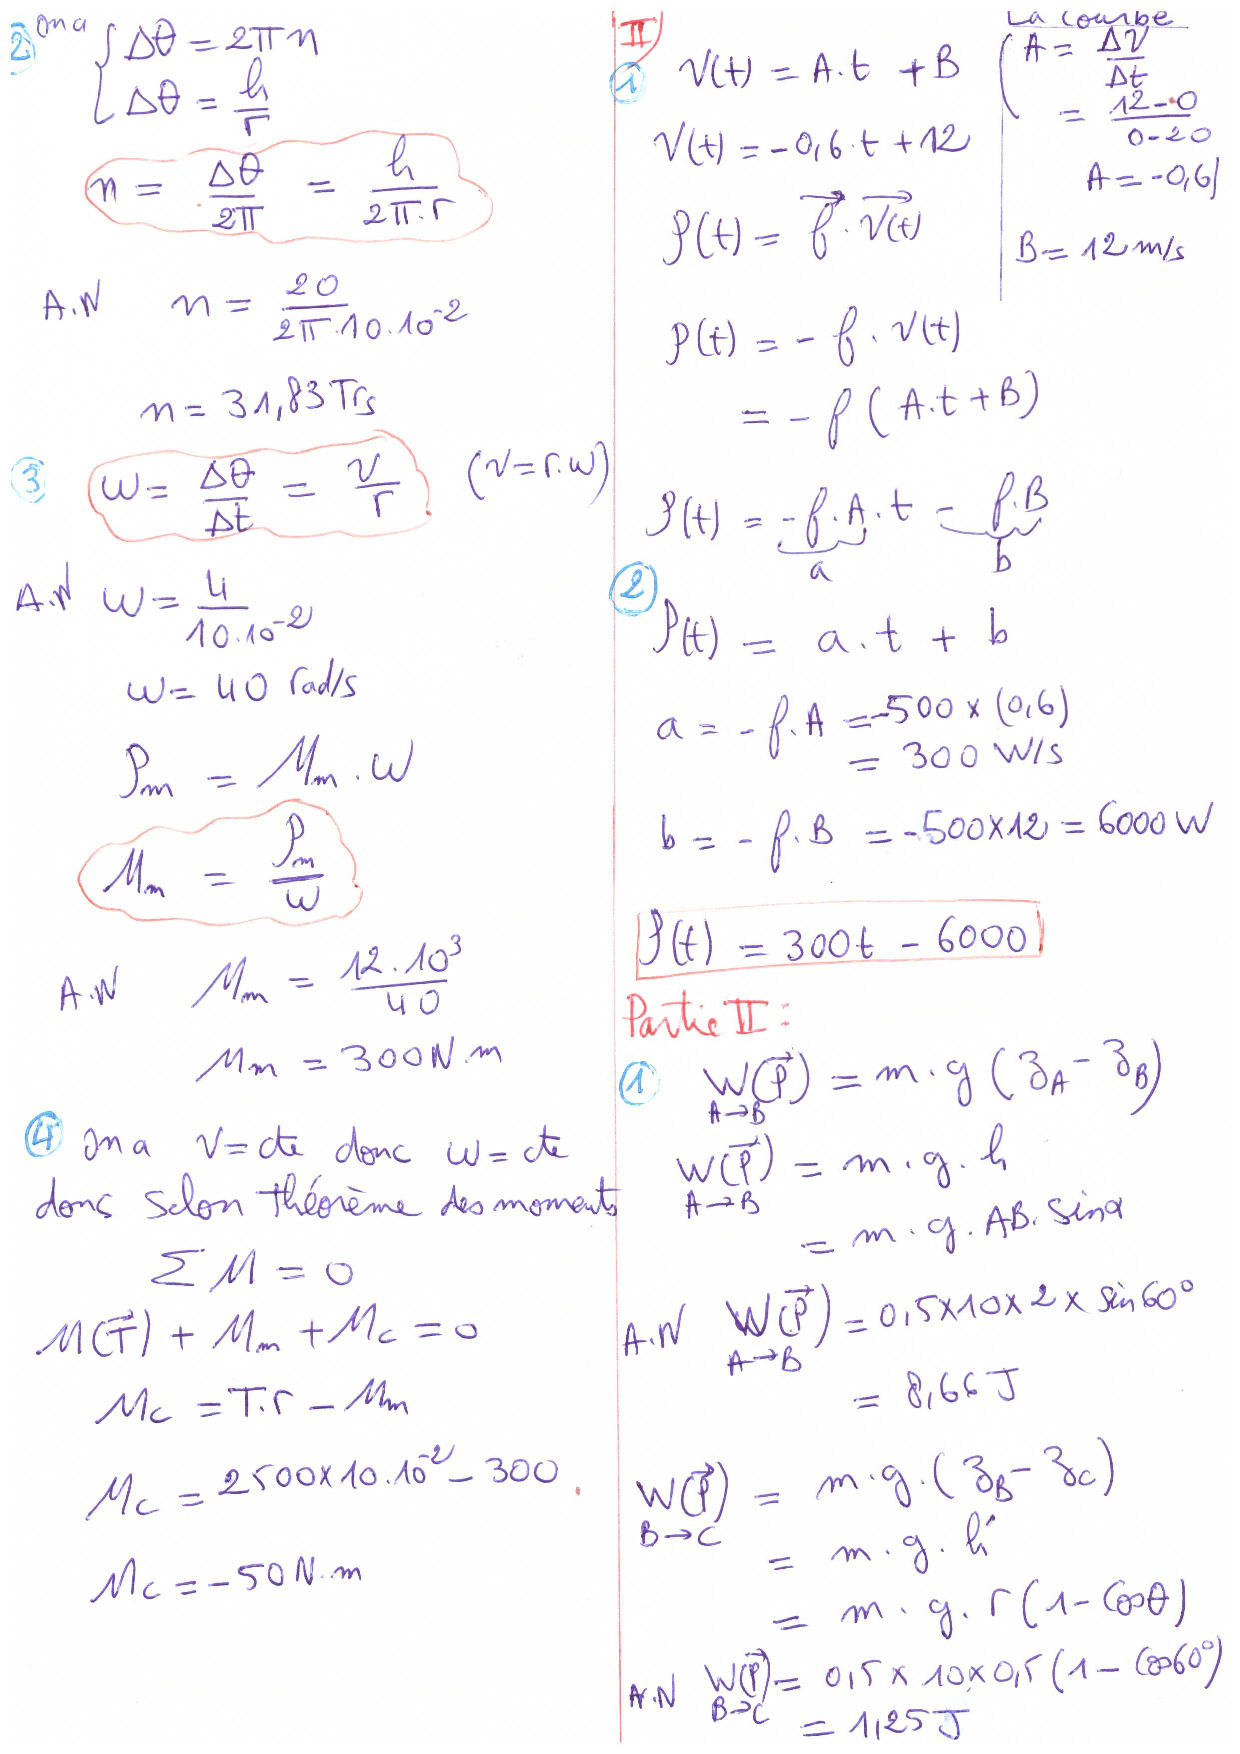 2) On a { Δθ = 2πn
Δθ = h/r
n = Δθ/2π = h/2π.r
A.N n = 20/2π.10.10⁻²
n = 31,83 Trs
3 ω = Δθ/Δt = v/r (v = r.ω)
A.N ω = 4/10.10⁻²
ω = 40 rad/s
Pm = Mm . ω
Mm = Pm/ω
A.N Mm = 12.10³/40
Mm = 300 N.m
4 On a v = cte donc ω = cte
donc selon théorème des moments
Σ M = 0
M(T⃗) + Mm + Mc = 0
Mc = T.r - Mm
Mc = 2500x10.10⁻² - 300
Mc = - 50 N.m
II)
1 V(t) = A.t + B
V(t) = -0,6.t + 12
P(t) = f⃗ . V⃗(t)
La courbe
A = ΔV/Δt
= 12-0/0-20
A = -0,6
B = 12 m/s
P(t) = - f . V(t)
= - f (A.t + B)
P(t) = -f.A.t - f.B
a b
2
P(t) = a.t + b
a = - f.A = -500 x (0,6)
= 300 W/s
b = - f.B = -500x12 = 6000 W
P(t) = 300t - 6000
Partie II :
1 W(P⃗) A→B = m.g (zA - zB)
W(P⃗) A→B = m.g.h
= m.g.AB.sinα
A.N W(P⃗) A→B = 0,5x10x2 x sin60°
= 8,66 J
W(P⃗) B→C = m.g.(zB - zC)
= m.g.h'
= m.g.r(1 - Cosθ)
A.N W(P⃗) B→C = 0,5 x 10 x 0,5 (1 - Cos60°)
= 1,25 J